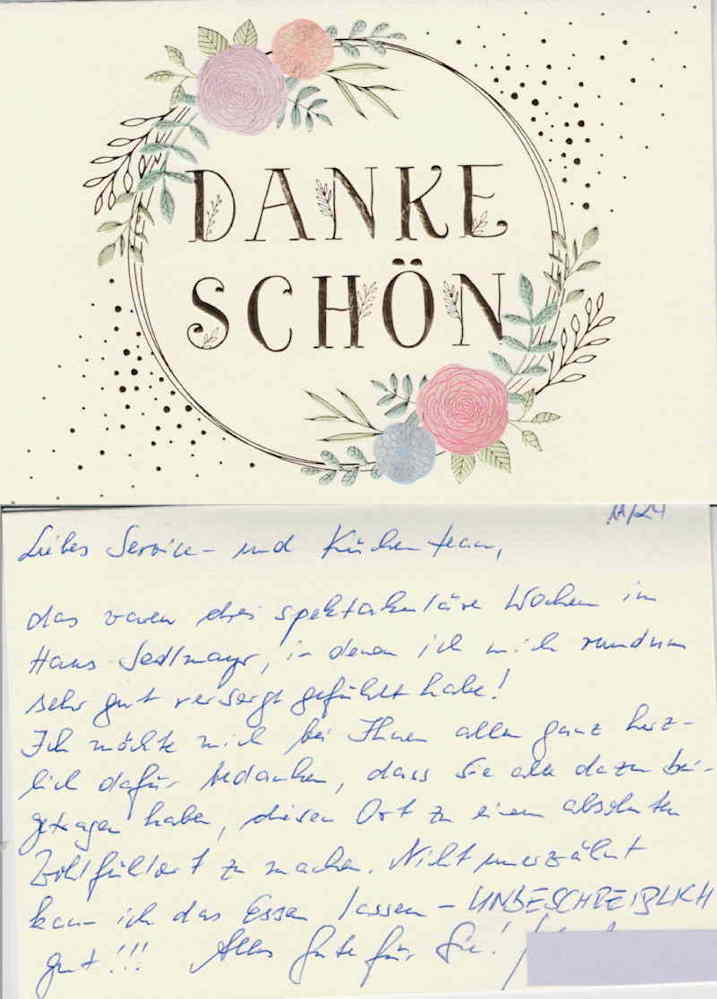 DANKE
SCHÖN
11/24
Liebes Service- und Küchenteam,
das waren drei spektakuläre Wochen im
Haus Sedlmayr, in denen ich mich rundum
sehr gut versorgt gefühlt habe!
Ich möchte mich bei Ihnen allen ganz herz-
lich dafür bedanken, dass Sie alle dazu bei-
getragen haben, diesen Ort zu einem absoluten
Wohlfühlort zu machen. Nicht unerwähnt
kann ich das Essen lassen – UNBESCHREIBLICH
gut!!! Alles Gute für Sie!